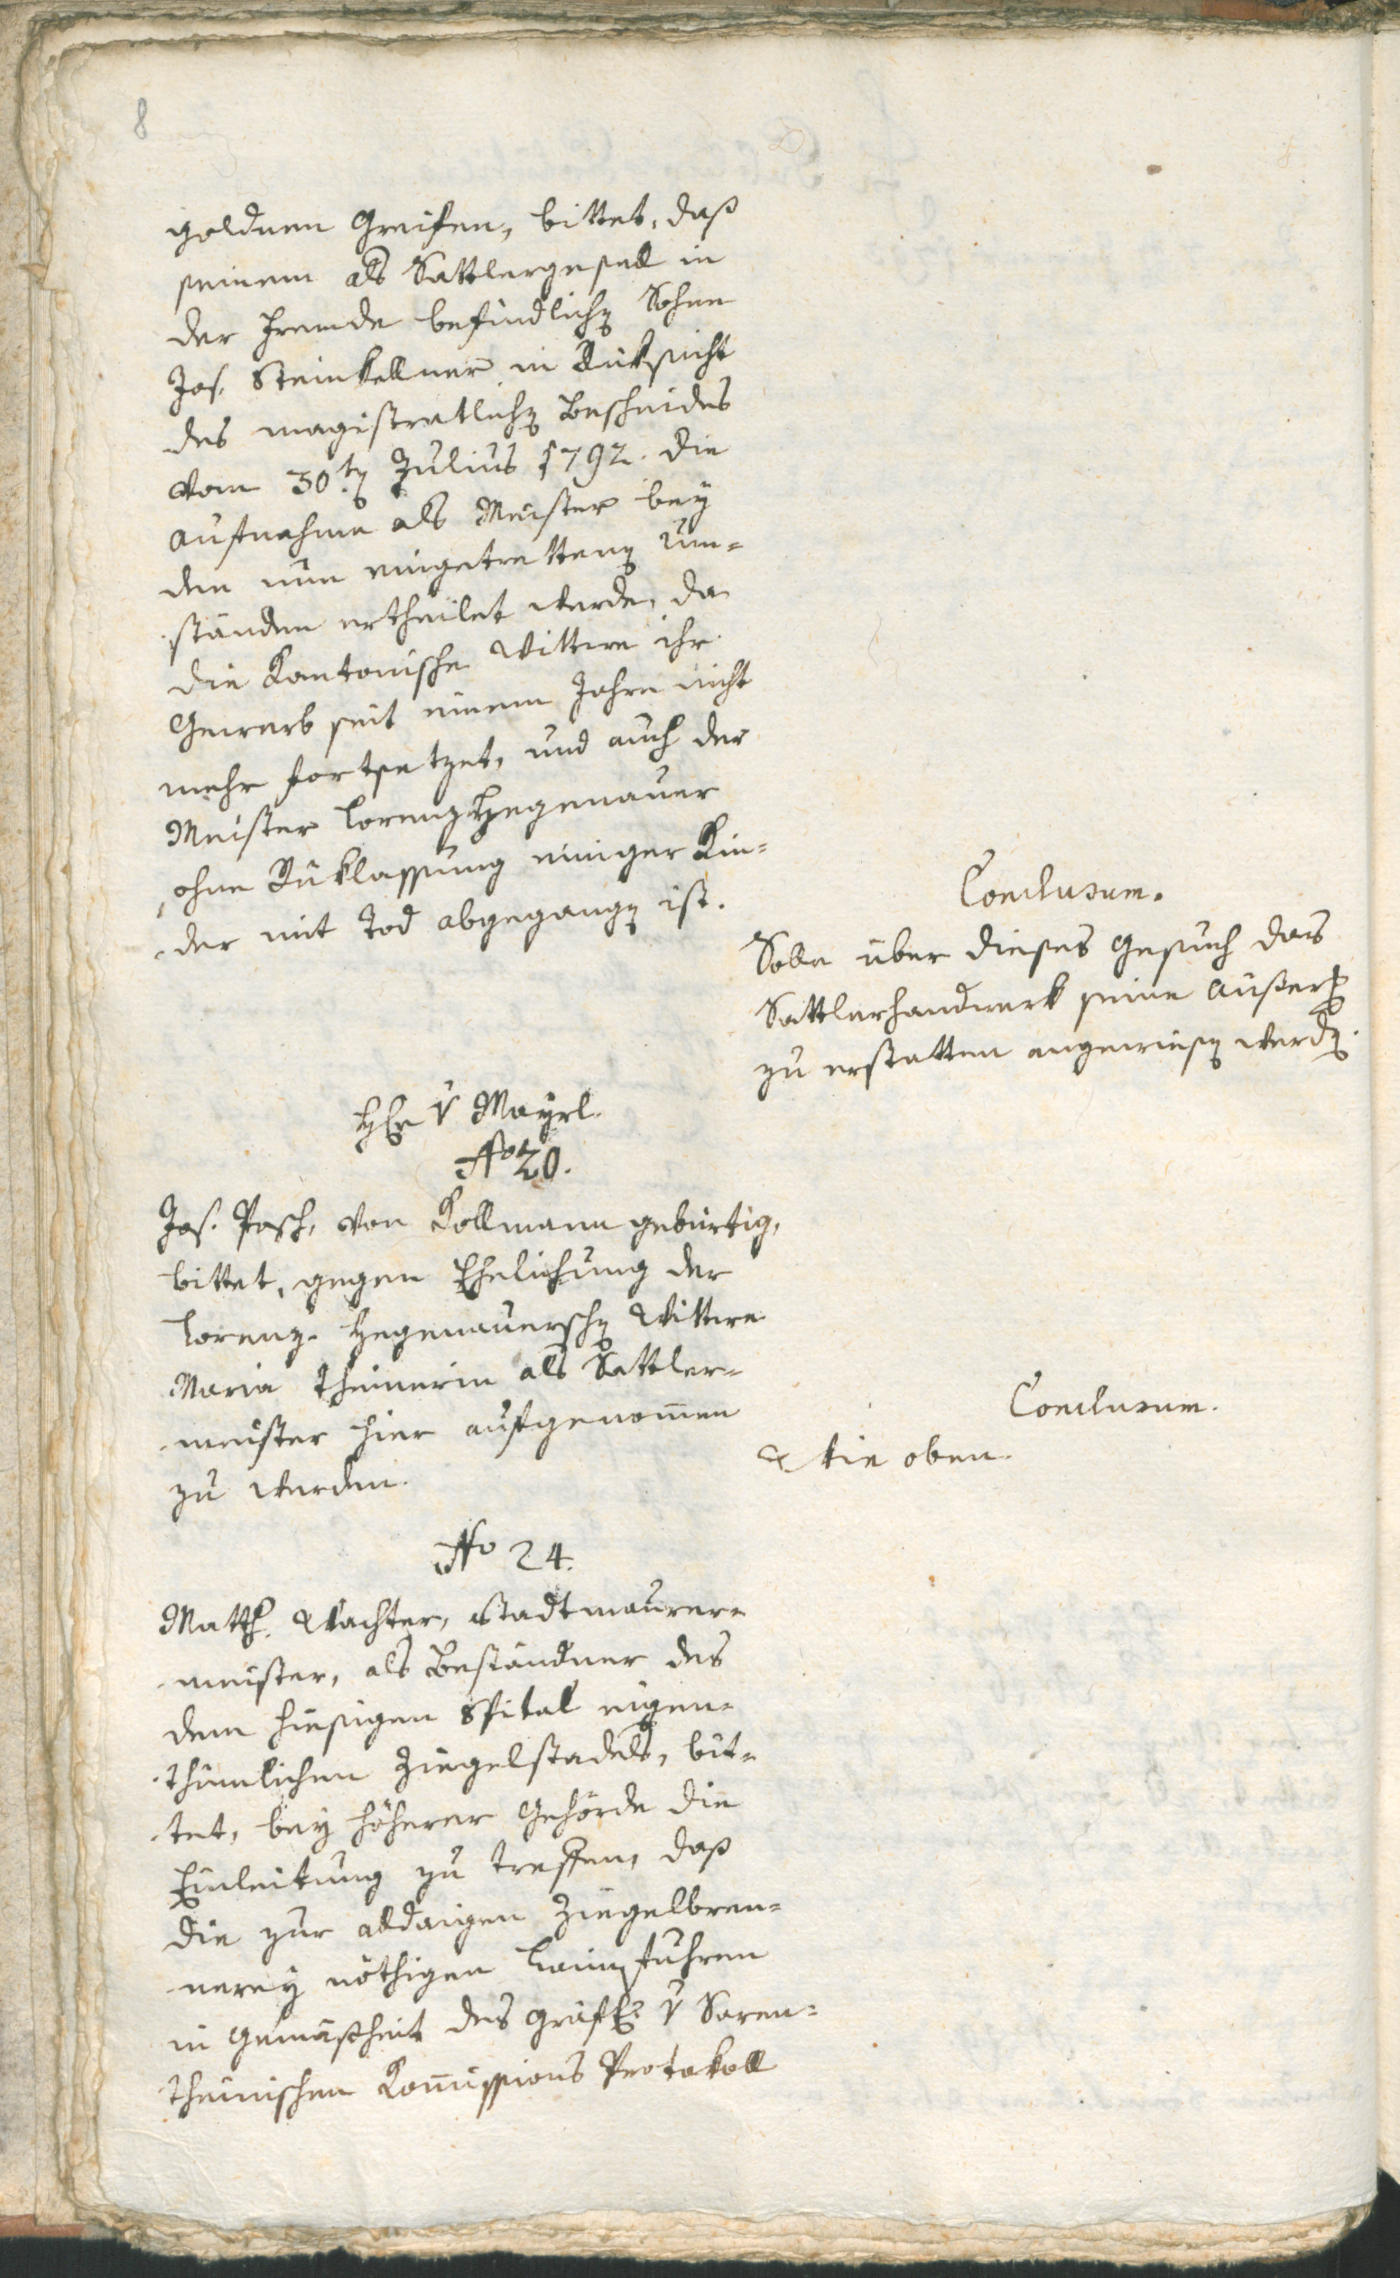 8
goldnen Greifen, bittet, daß
seinem als Sattlergesell in
der Fremde befindlichen Sohne
Jos. Steinkellner in Rüksicht
des magistratlichen Bescheides
vom 30ten Julius 1792. die
Aufnahme als Meister bey
den nun eingetrettenen Um=
ständen ertheilet werde, da
die Kantonische Wittwe ihr
Gewerb seit einem Jahre nicht
mehr fortsetzet, und auch der
Meister Lorenz Hegenauer
ohne Rüklassung einiger Kin=
der mit Tod abgegangen ist.
Conclusum.
Solle über dieses Gesuch das
Sattlerhandwerk seine Äußerung
zu erstatten angewiesen werden.
Hr. v Mayrl.
No 20.
Jos. Pasch, von Kollmann gebürtig,
bittet, gegen Ehelichung der
Lorenz Hegenauerschen Wittwe
Maria Theinerin als Sattler=
meister hier aufgenom̅en
zu werden.
Conclusum.
Wie oben.
No 24.
Matth. Wachter, Stadtmaurer=
meister, als Beständner des
dem hiesigen Spital eigen=
thümlichen Ziegelstadels, bit=
tet, bey höherer Gehörde die
Einleitung zu treffen, daß
die zur aldaigen Ziegelbren=
nerey nöthigen Laimfuhren
in Gemäßheit des Gräfl. v Saren=
theinischen Kom̅issions Protokoll